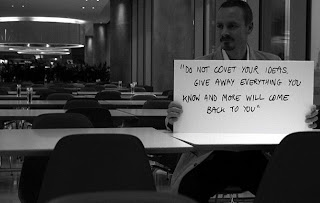 "DO NOT COVET YOUR IDEAS.
GIVE AWAY EVERYTHING YOU
KNOW AND MORE WILL COME
BACK TO YOU"